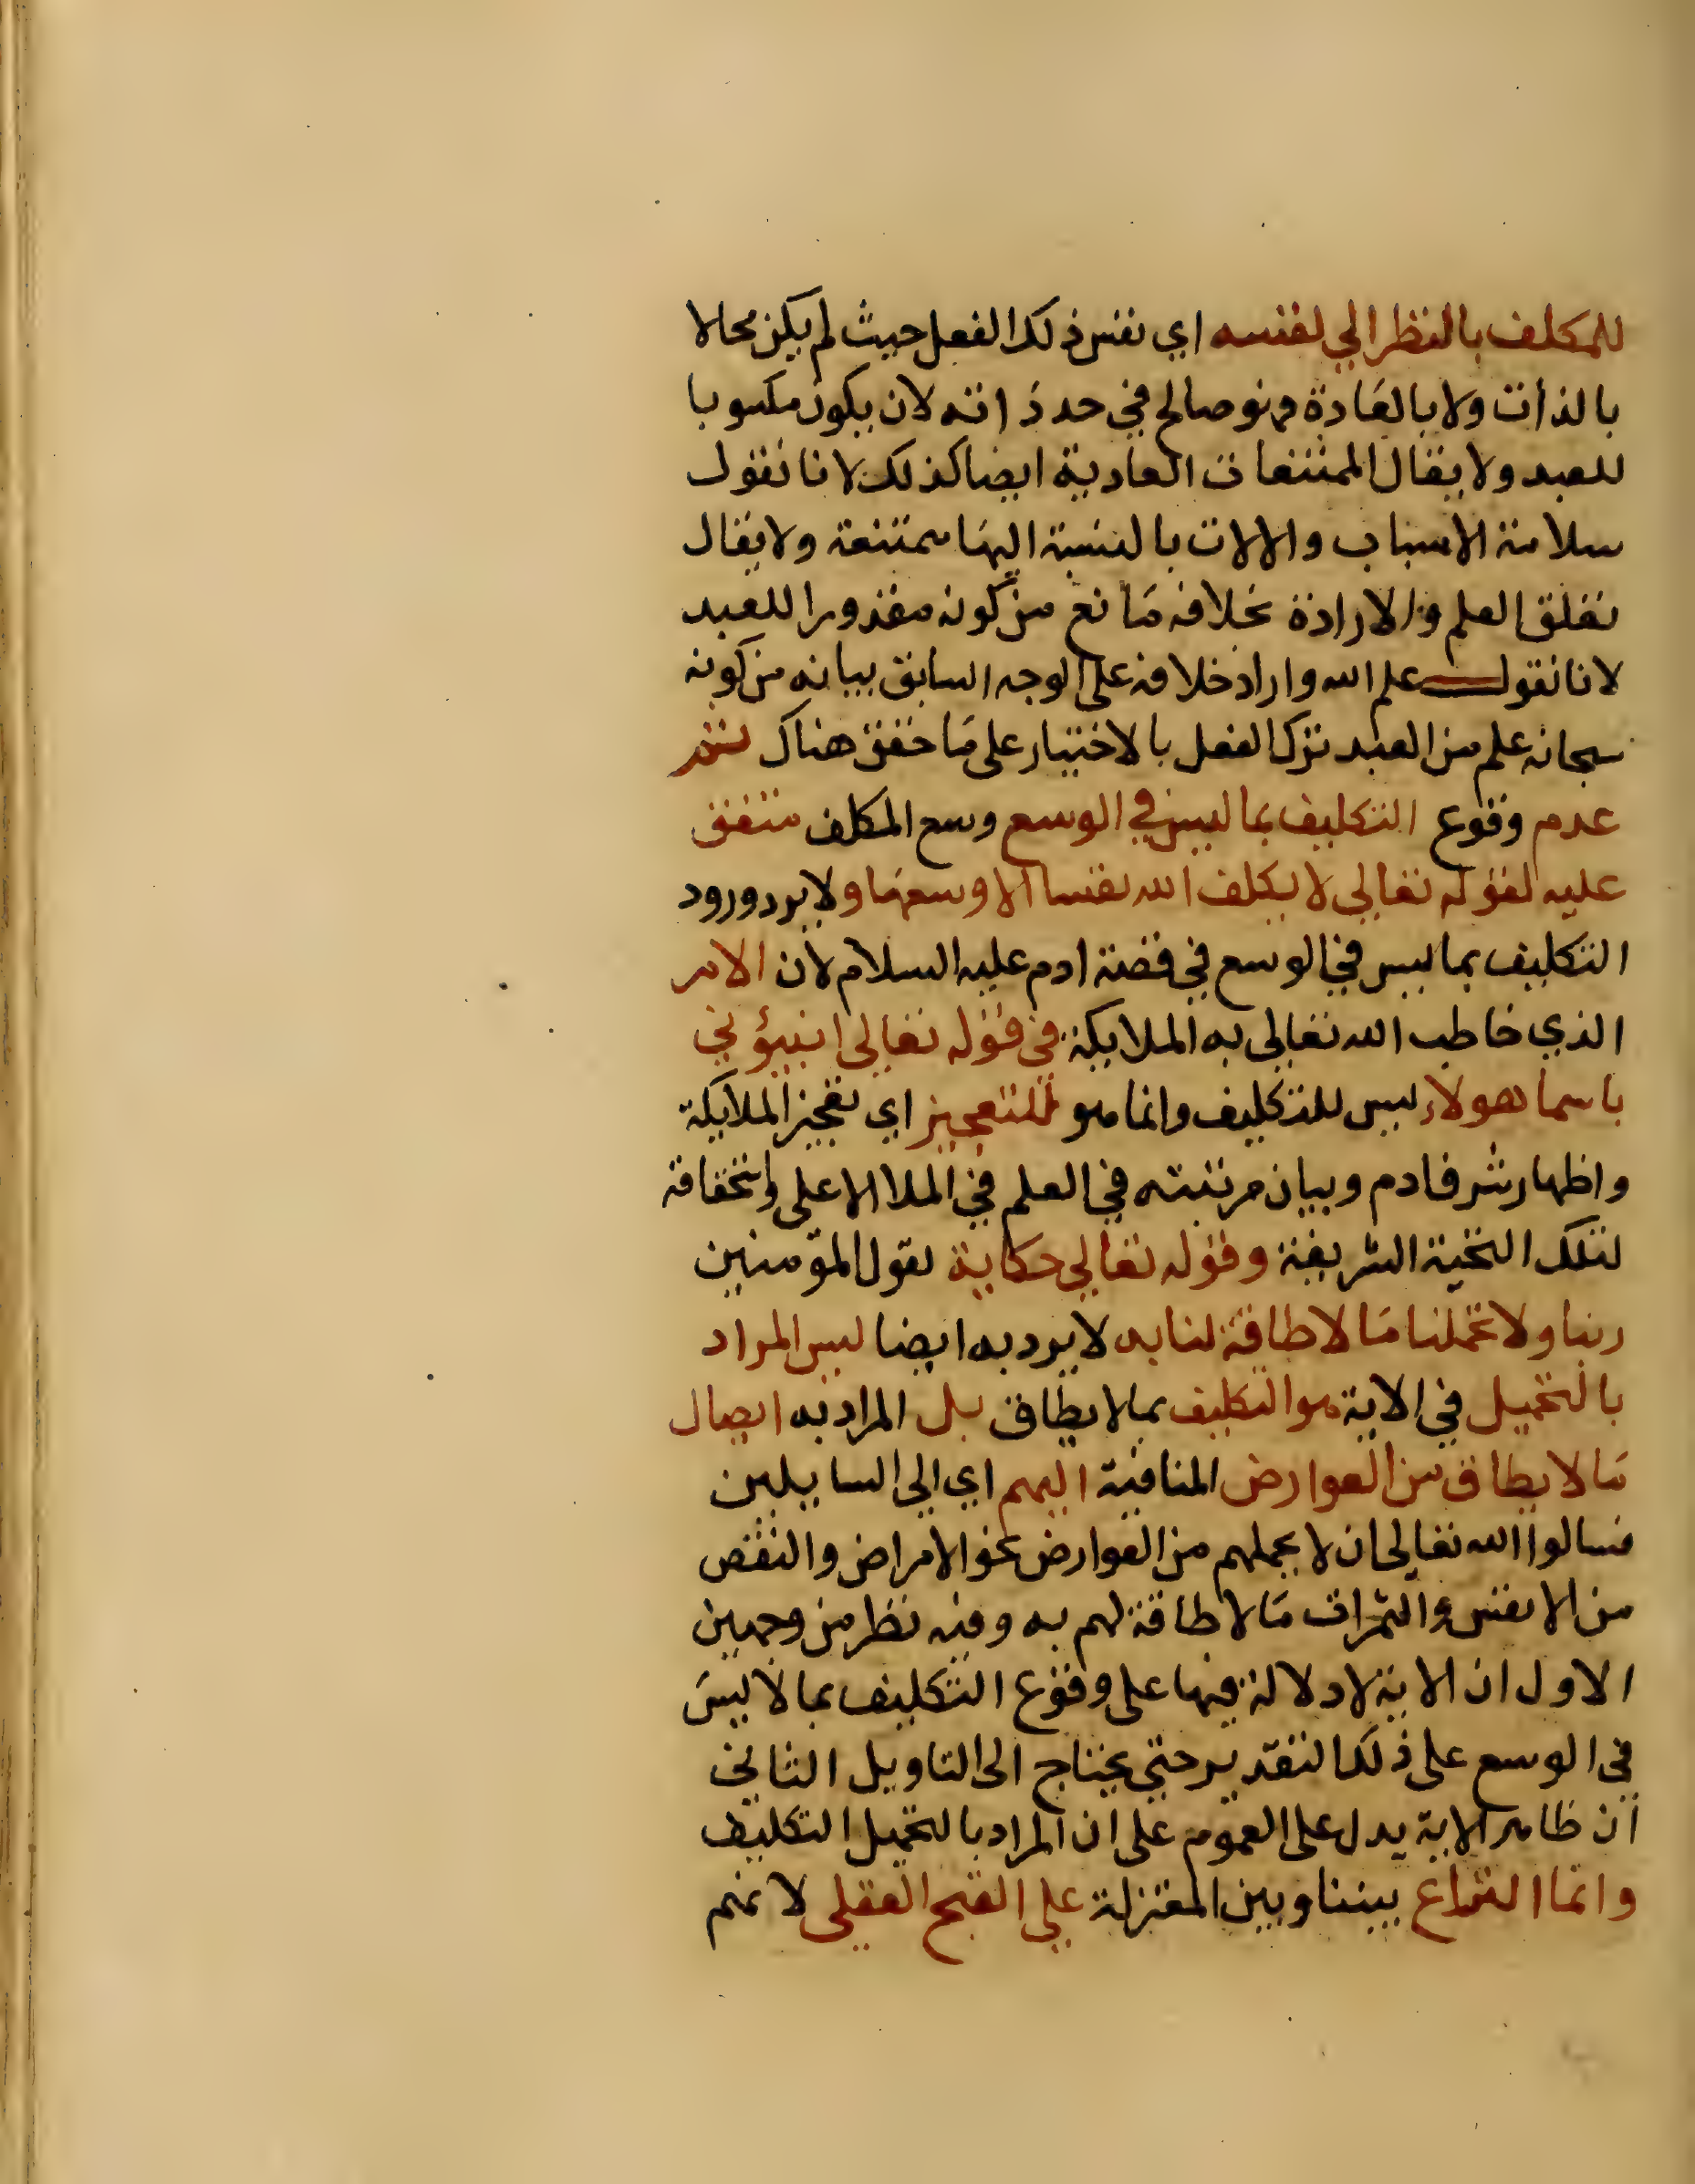 للمكلف بالنظر الي نفسه اي نفس ذلك الفعل حيث لم يكن محالا
بالذات ولا بالعادة وهو صالح في حد ذاته لان يكون مكسوبا
للعبد ولا يقال الممتنعات العادية ايضا كذلك لانا نقول
سلامة الاسباب والالات بالنسبة اليها ممتنعة ولا يقال
تعلق العلم والارادة بخلافه مانع من كونه مقدورا للعبد
لانا نقول علم الله واراد خلافه على الوجه السابق بيانه من كونه
سبحانه علم من العبد ترك الفعل بالاختيار على ما حقق هناك ثم
عدم وقوع التكليف بما ليس في الوسع وسع المكلف متفق
عليه لقوله تعالى لا يكلف الله نفسا الا وسعها ولا يرد ورود
التكليف بما ليس في الوسع في قصة ادم عليه السلام لان الامر
الذي خاطب الله تعالى به الملايكة في قوله تعالى انبيؤني
باسما هولاء ليس للتكليف وانما هو للتعجيز اي تعجيز الملايكة
واظهار شرف ادم وبيان مرتبته في العلم في الملا الاعلى واستحقاقه
لتلك التحية الشريفة وقوله تعالي حكاية لقول المؤمنين
ربنا ولا تحملنا ما لا طاقة لنا به لا يرد به ايضا ليس المراد
بالتحميل في الاية هو التكليف بما لا يطاق بل المراد به ايصال
ما لا يطاق من العوارض المنافية اليهم اي الى السايلين
فسالوا الله تعالى ان لا يحملهم من العوارض نحو الامراض والنقص
من الانفس والثمرات ما لا طاقة لهم به وفيه نظر من وجهين
الاول ان الاية لا دلالة فيها على وقوع التكليف بما لا ليس
في الوسع على ذلك التقدير حتى يحتاج الى التاويل الثاني
ان ظاهر الاية يدل على العموم على ان المراد بالتحميل التكليف
وانما النزاع بيننا وبين المعتزلة علي القبح العقلى لانهم